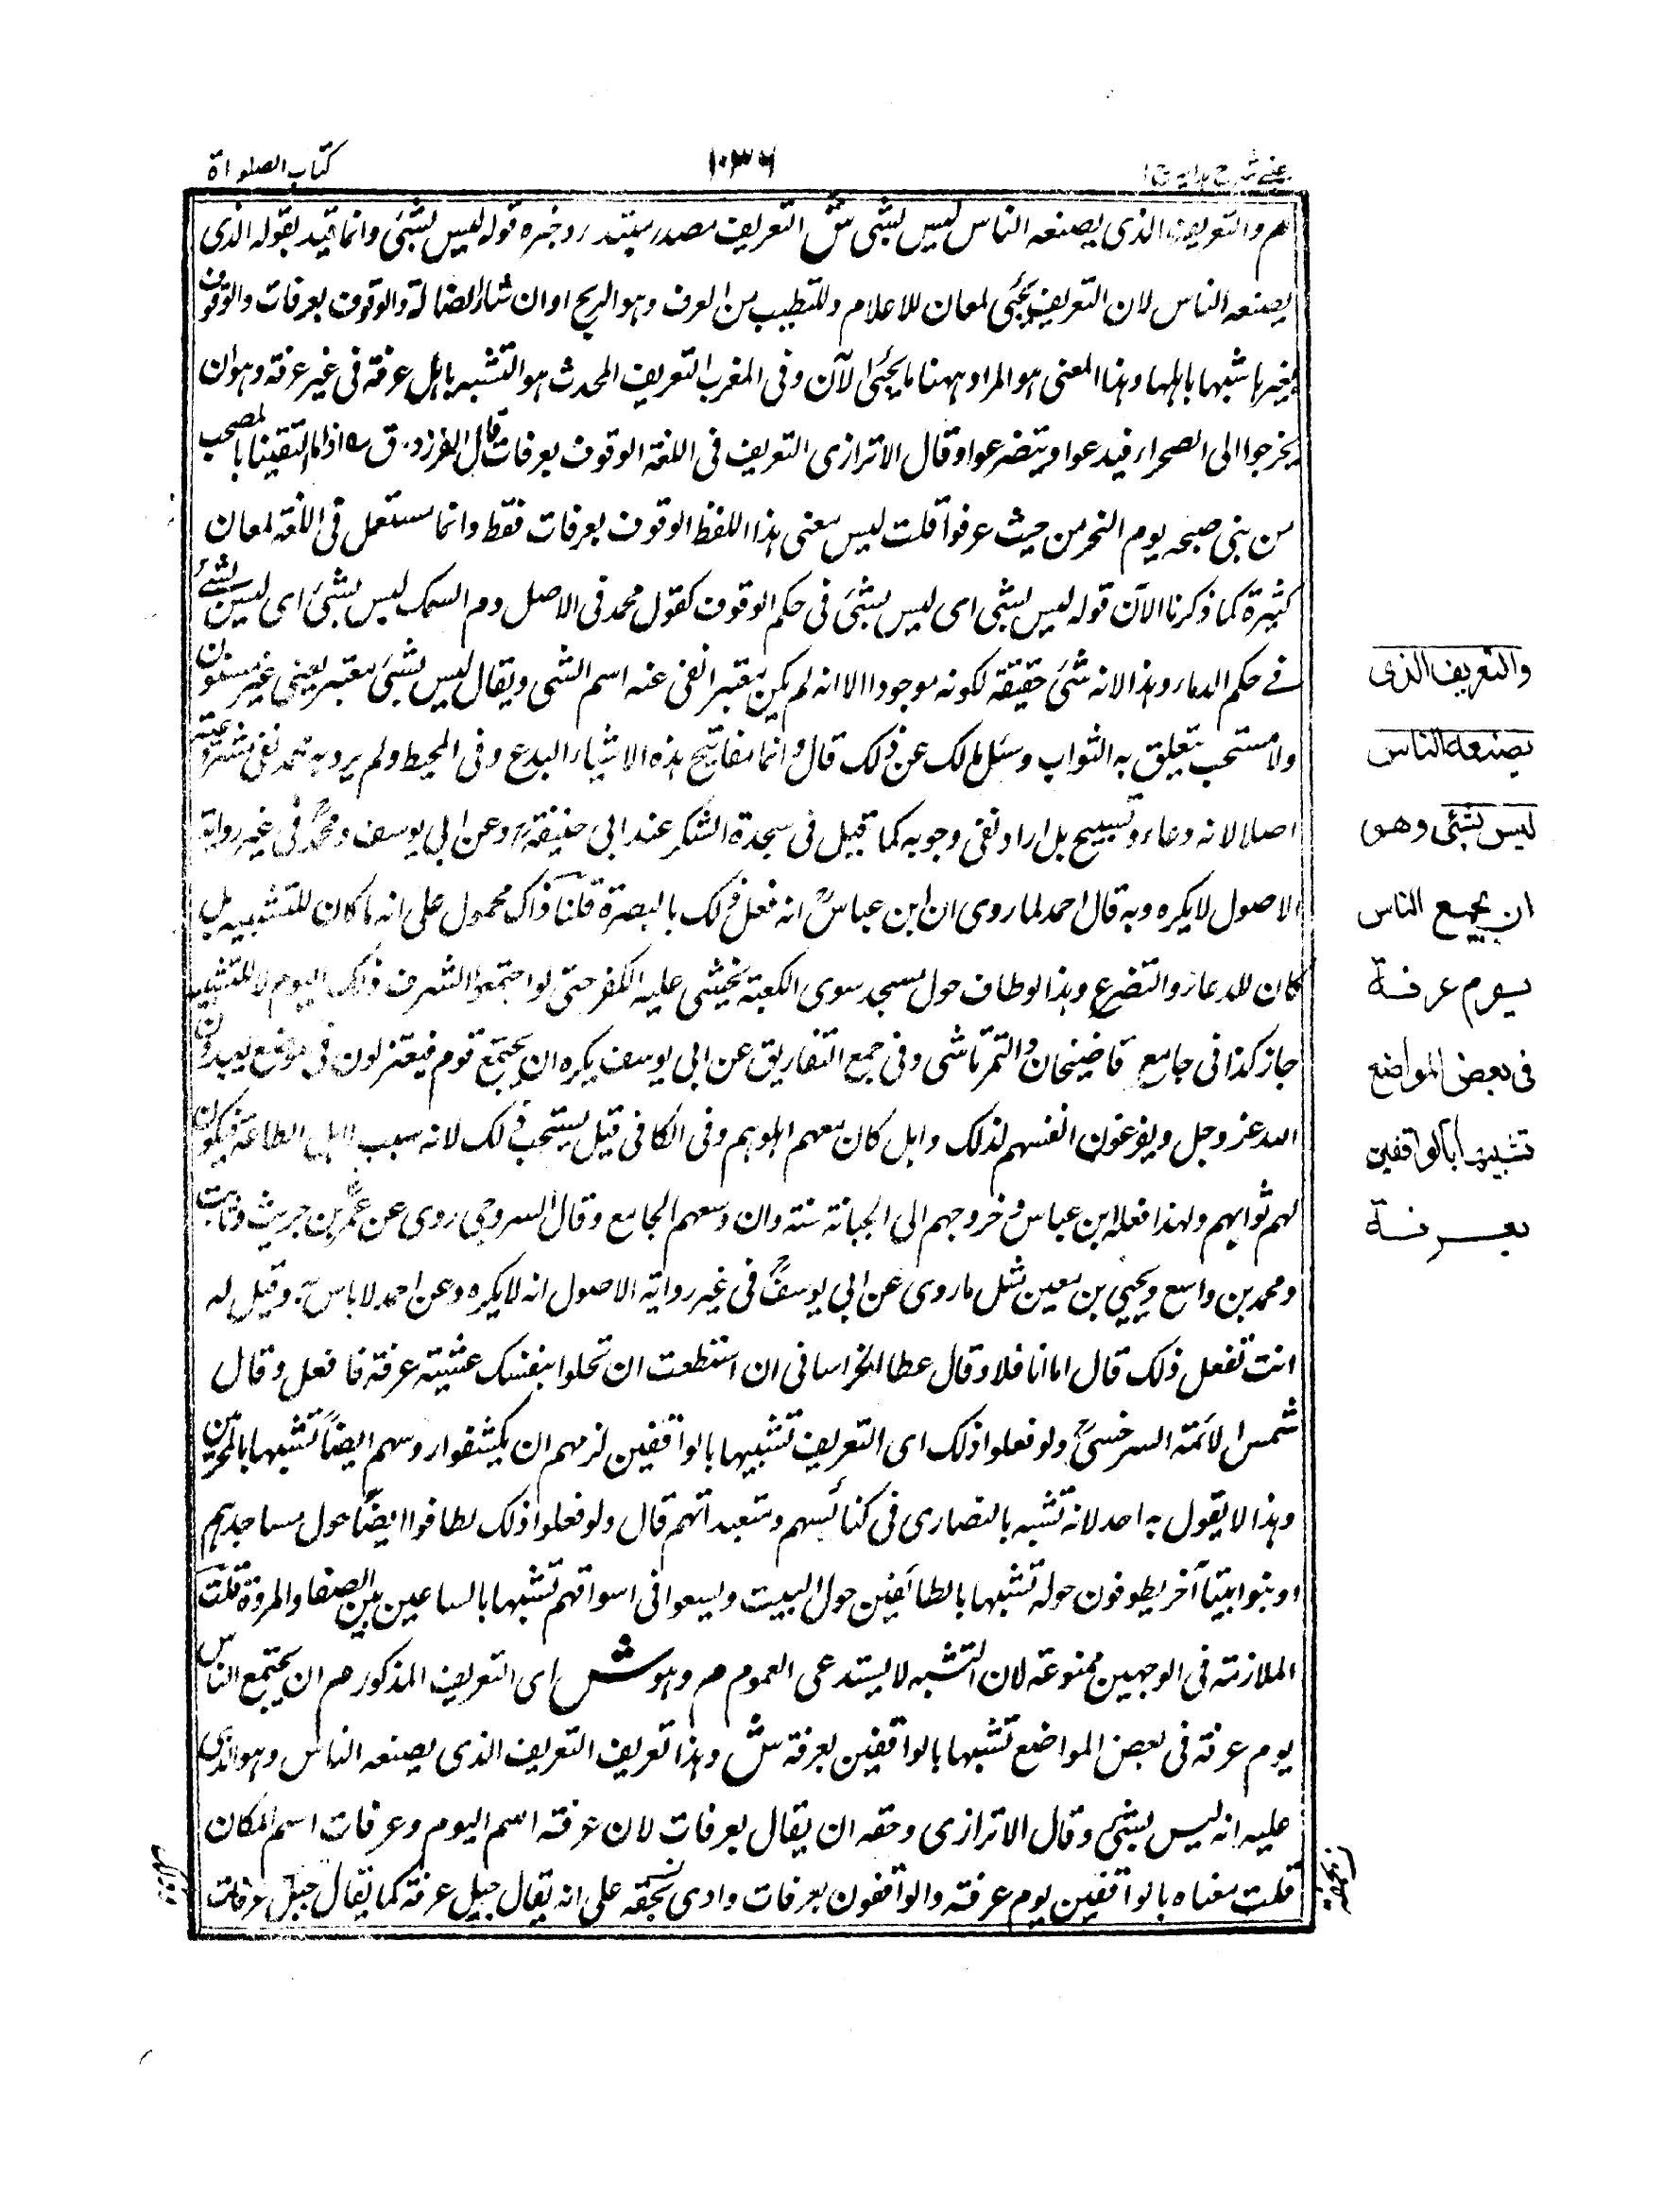 كتاب الصلواة
١٠٣٦
عينى شرح هدايه ج ١
م والتعريف الذى يصنعه الناس ليس بشئ ش التعريف مصدر مبتدء وخبره قوله ليس بشئ وانما قيد بقوله الذى
يصنعه الناس لان التعريف يجئ لمعان للاعلام وللتطيب من العرف وهو الريح او ان شاء الضالة والوقوف بعرفات والوقوف
بغيرها شبها باهلها وهذا المعنى هو المراد ههنا ما يجئ الآن وفى المغرب التعريف المحدث هو التشبه باهل عرفة فى غير عرفة وهو ان
يخرجوا الى الصحراء فيدعوا ويتضرعوا وقال الاترازى التعريف فى اللغة الوقوف بعرفات قال الفرزدق ه اذا ما التقينا بالمصحب
من بنى صبحه يوم النحر من حيث عرفوا قلت ليس معنى هذا اللفظ الوقوف بعرفات فقط وانما مستعمل فى اللغة لمعان
كثيرة كما ذكرنا الآن قوله ليس بشئ اى ليس بشئ فى حكم الوقوف كقول محمد فى الاصل دم السمك ليس بشئ اى ليس بشئ
فے حكم الدماء وهذا لانه شئ حقيقة لكونه موجودا الا انه لم يكن معتبرا نفى عنه اسم الشئ ويقال ليس بشئ معتبر يعنى غير مسنون
ولا مستحب يتعلق به الثواب وسئل مالك عن ذلك قال وانما مفاتيح هذه الاشياء البدع وفى المحيط ولم يرد به محمد نفى مشروعيته
اصلا لانه دعاء وتسبيح بل اراد نفى وجوبه كما قيل فى سجدة الشكر عند ابى حنيفة رح وعن ابى يوسف ومحمد رح فى غير رواية
الاصول لا يكره وبه قال احمد لما روى ان ابن عباس رض انه فعل ذلك بالبصرة قلنا ذاك محمول على انه ما كان للتشبيه بل
كان للدعاء والتضرع وهذا لو طاف حول مسجد سوى الكعبة يخشى عليه الكفر حتى لو اجتمعوا الشرف ذلك اليوم لا للتشبيه
جاز كذا فى جامع قاضيخان والتمرتاشى وفى جمع التفاريق عن ابى يوسف يكره ان يجتمع قوم فيعتزلون فى موضع يعبدون
الله عز وجل ويفرغون انفسهم لذلك وابل كان معهم اهلوهم وفى الكافى قيل يستحب ذلك لانه سبب لاهل الطاعة فيكون
لهم ثوابهم ولهذا فعله ابن عباس رض خروجهم الى الجبانة سنة وان وسعهم الجامع وقال السروجى روى عن عمر بن حريث وثابت
ومحمد بن واسع ويحيى بن معين مثل ما روى عن ابى يوسف رح فى غير رواية الاصول انه لا يكره وعن احمد لا باس به وقيل له
انت تفعل ذلك قال اما انا فلا وقال عطا الخراسانى ان استطعت ان تخلوا بنفسك عشية عرفة فافعل وقال
شمس الائمة السرخسى رح ولو فعلوا ذلك اى التعريف تشبيها بالواقفين لزمهم ان يكشفوا روسهم ايضا تشبها بالمحرمين
وهذا لا يقول به احد لانه تشبه بالنصارى فى كنائسهم ومتعبداتهم قال ولو فعلوا ذلك لطافوا ايضا حول مساجدهم
او بنوا بيتا آخر يطوفون حوله تشبها بالطائفين حول البيت وليسعوا فى اسواقهم تشبها بالساعين بين الصفا والمروة قلت
الملازمة فى الوجهين ممنوعة لان التشبه لا يستدعى العموم م وهو ش اى التعريف المذكور م ان يجتمع الناس
يوم عرفة فى بعض المواضع تشبها بالواقفين بعرفة ش وهذا تعريف التعريف الذى يصنعه الناس وهو الذى
عليه انه ليس بشئ وقال الاترازى وحقه ان يقال بعرفات لان عرفة اسم اليوم وعرفات اسم المكان
قلت معناه بالواقفين يوم عرفة والواقفون بعرفات وادى بحقه على انه يقال جبل عرفة كما يقال جبل عرفات
والتعريف الذى
يصنعه الناس
ليس بشئ وهو
ان يجمع الناس
يوم عرفة
فى بعض المواضع
تشبيها بالواقفين
بعرفة